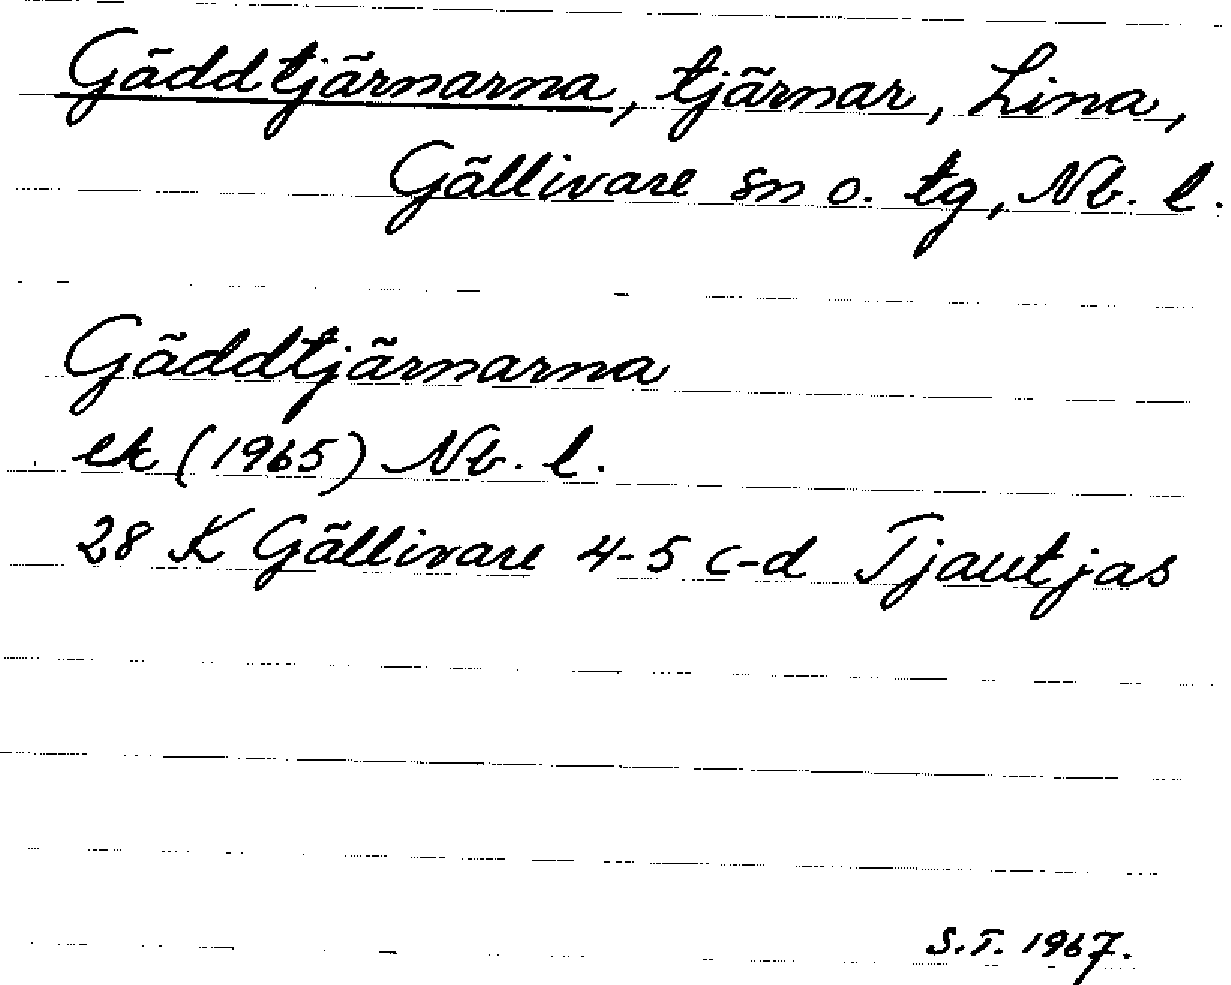 Gäddtjärnarna, tjärnar, Lina,
Gällivare sn o. tg, Nb. l.
Gäddtjärnarna
ek (1965) Nb. l.
28 K Gällivare 4-5 c-d Tjautjas
S.T. 1967.